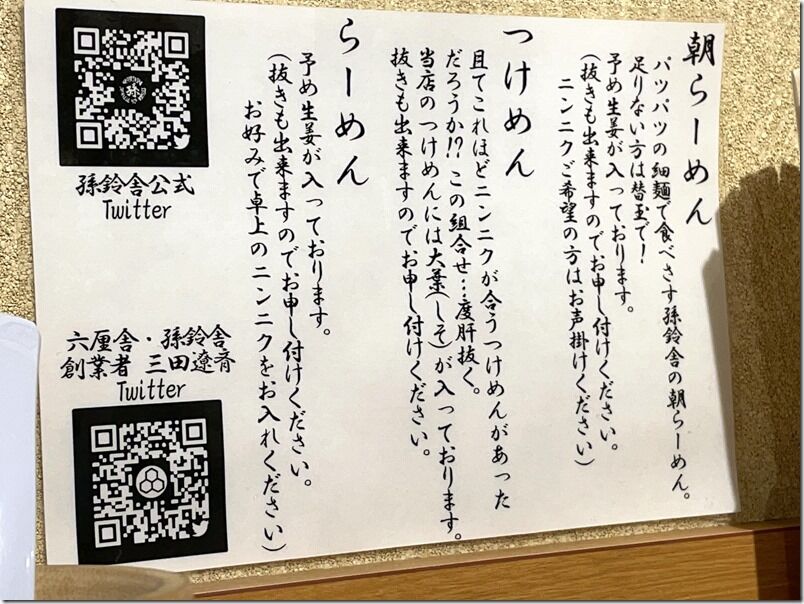 朝らーめん
パツパツの細麺で食べさす孫鈴舎の朝らーめん。
足りない方は替玉で!
予め生姜が入っております。
(抜きも出来ますのでお申し付けください。
ニンニクご希望の方はお声掛けください)
つけめん
且てこれほどニンニクが合うつけめんがあった
だろうか!?この組合せ…度肝抜く。
当店のつけめんには大葉(しそ)が入っております。
抜きも出来ますのでお申し付けください。
らーめん
予め生姜が入っております。
(抜きも出来ますのでお申し付けください。
お好みで卓上のニンニクをお入れください)
孫鈴舎公式
Twitter
六厘舎・孫鈴舎
創業者 三田遼斉
Twitter